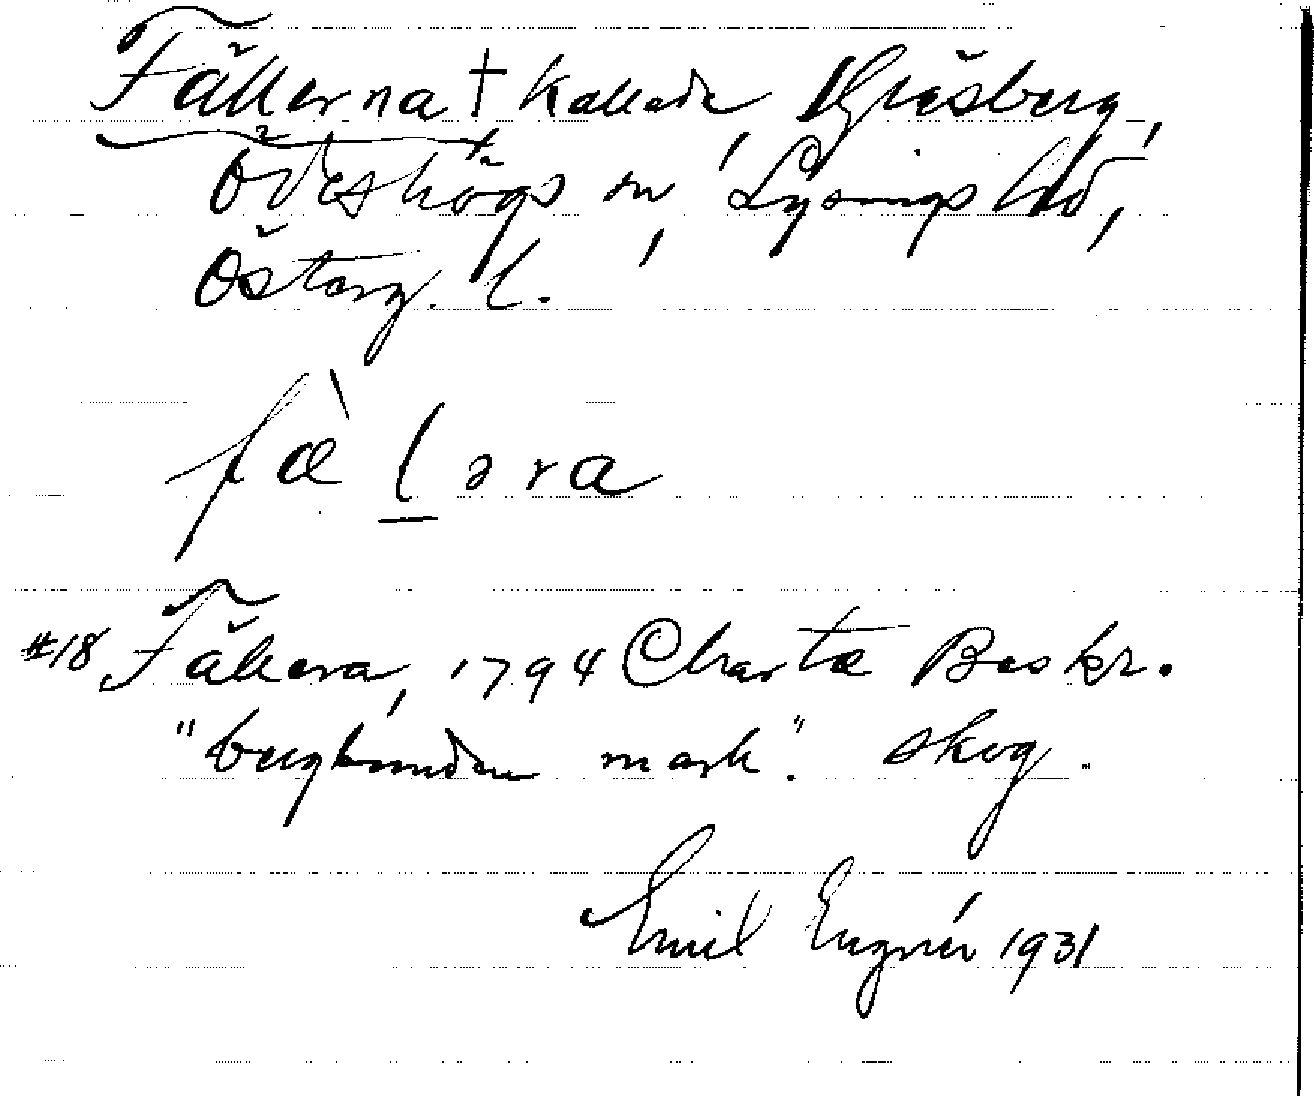 Fällerna † kallade, Gräsberg,
Ödeshögs sn, Lysings hd,
Österg. l.
fæ̀ l̠ əra
#18 Fällera, 1794 Charta Beskr.
"bergbunden mark". skog.
Emil Engnér 1931